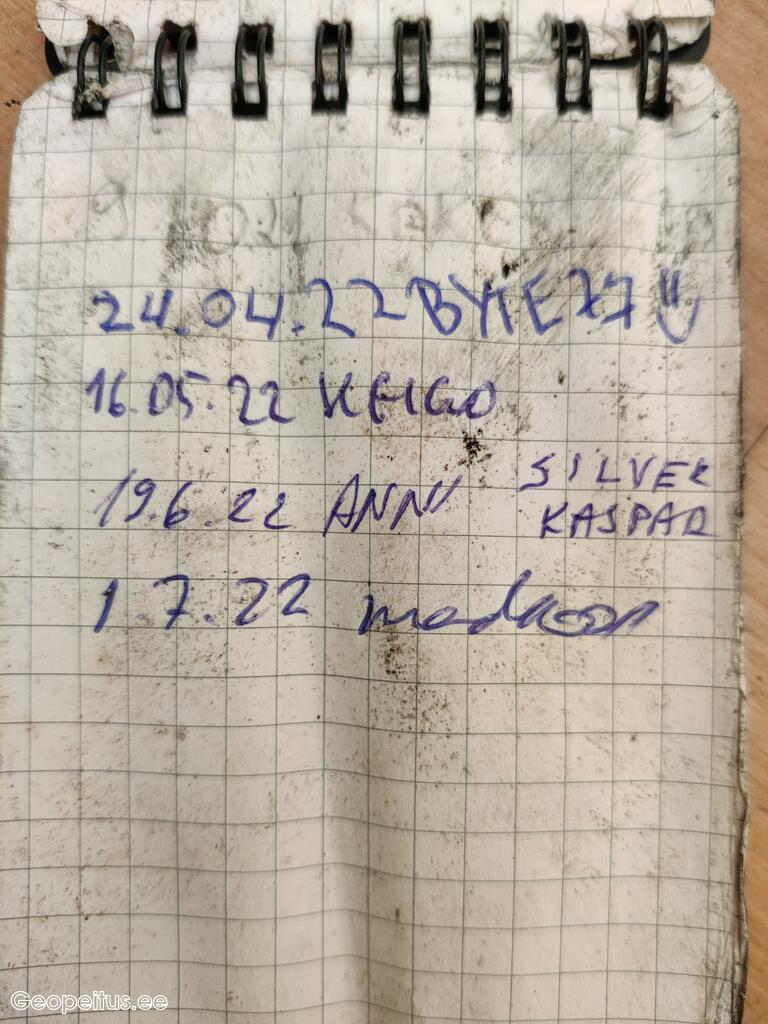 24.04.22 BYTE77
16.05.22 KEIGO
19.6.22 ANNI SILVER
KASPAR
1.7.22
Geopeitus.ee